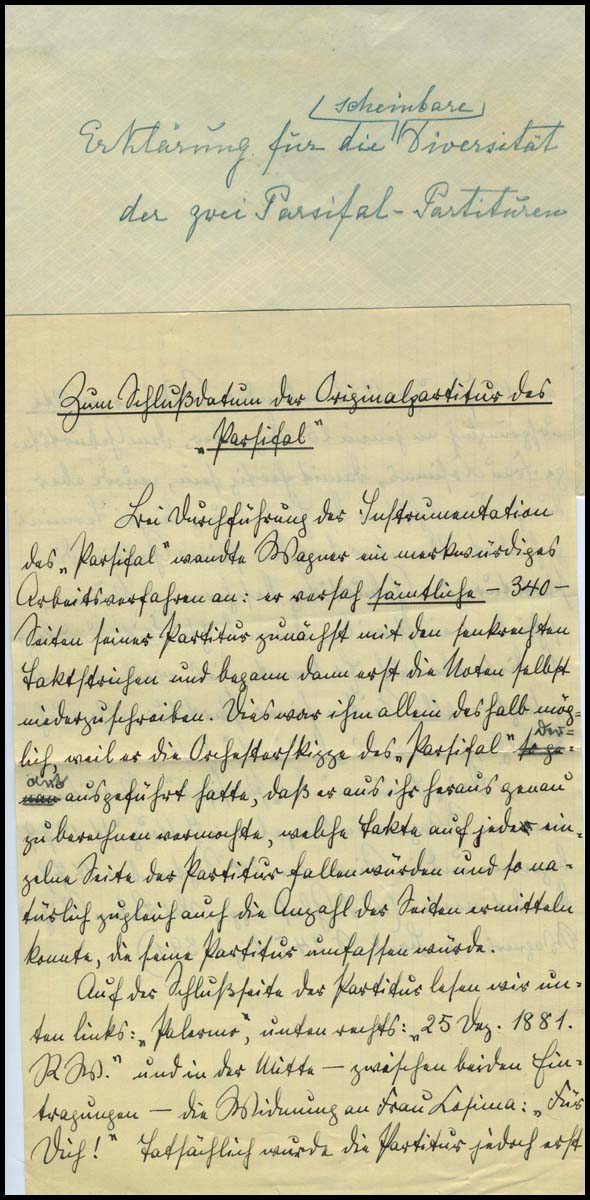 scheinbare
Erklärung für die Diversität
der zwei Parsifal-Partituren
Zum Schlußdatum der Originalpartitur des
„Parsifal"
Bei Durchführung der Instrumentation
des „Parsifal" wandte Wagner ein merkwürdiges
Arbeitsverfahren an: er versah sämtliche – 340 –
Seiten seiner Partitur zunächst mit den senkrechten
Taktstrichen und begann dann erst die Noten selbst
niederzuschreiben. Dies war ihm allein deshalb mög-
lich, weil er die Orchesterskizze des „Parsifal" so ge- der-
nau art ausgeführt hatte, daß er aus ihr heraus genau
zu berechnen vermochte, welche Takte auf jede ein-
zelne Seite der Partitur fallen würden und so na-
türlich zugleich auch die Anzahl der Seiten ermitteln
konnte, die seine Partitur umfassen würde.
Auf der Schlußseite der Partitur lesen wir un-
ten links: „Palermo", unten rechts: „25 Dez. 1881.
R W." und in der Mitte – zwischen beiden Ein-
tragungen – die Widmung an Frau Cosima: „Für
Dich!" Tatsächlich wurde die Partitur jedoch erst